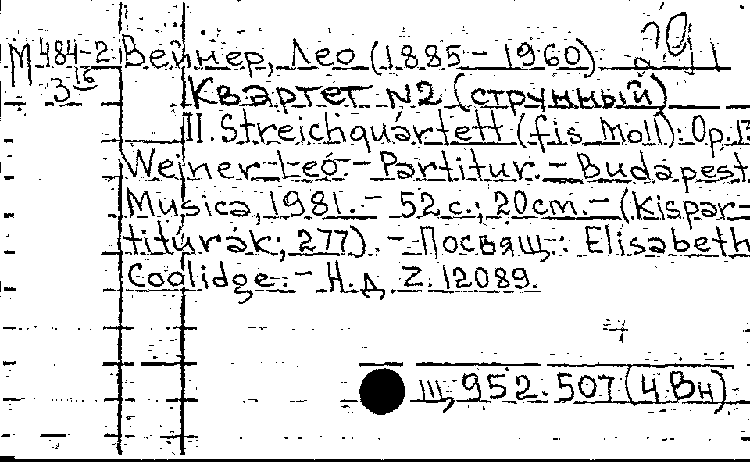 М 484-2 Вейнер, Лео (1885 – 1960) 291
З 16
Квартет №2 (струнный)
II. Streichquartett (fis moll): Op. 13
Weiner Leó. – Partitur. – Budapest
Musica, 1981. – 52 с.; 20 cm. – (Kispar-
titúrák; 277). – Посвящ.: Elisabeth
Coolidge. – Н. д. Z. 12089.
Ш, 952.507 (4Вн)